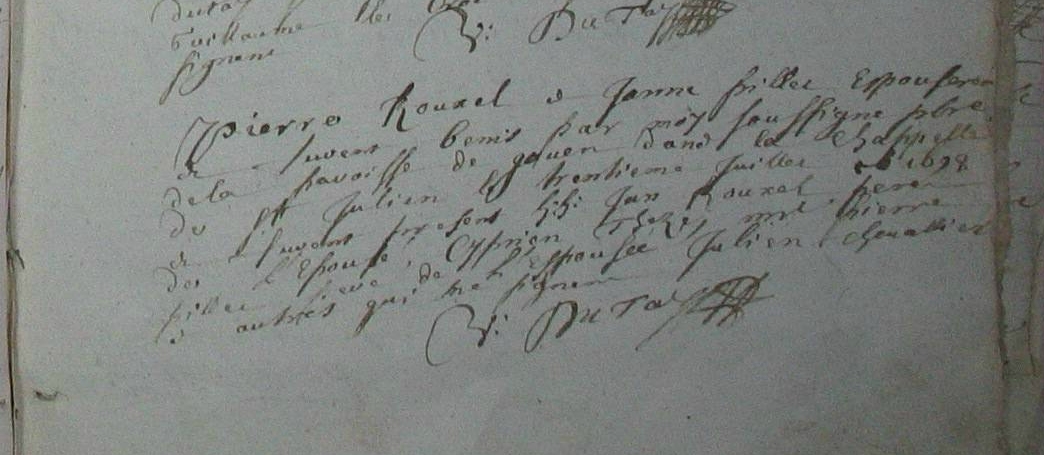 Guillaume
signent
V: Du Tay
Pierre Rouxel & Janne frillet Espouserent
& furent benis par moy soussigne pbre
de la paroisse de gouen dans la Chappelle
de st Julien le trentieme Juillet 1698
& furent present Jan Rouxel pere
de l'Epousé, Cyprien mre pierre
frillet de l'Epousée Julien Chevallier
& autres qui ne signent
V: Du Tay